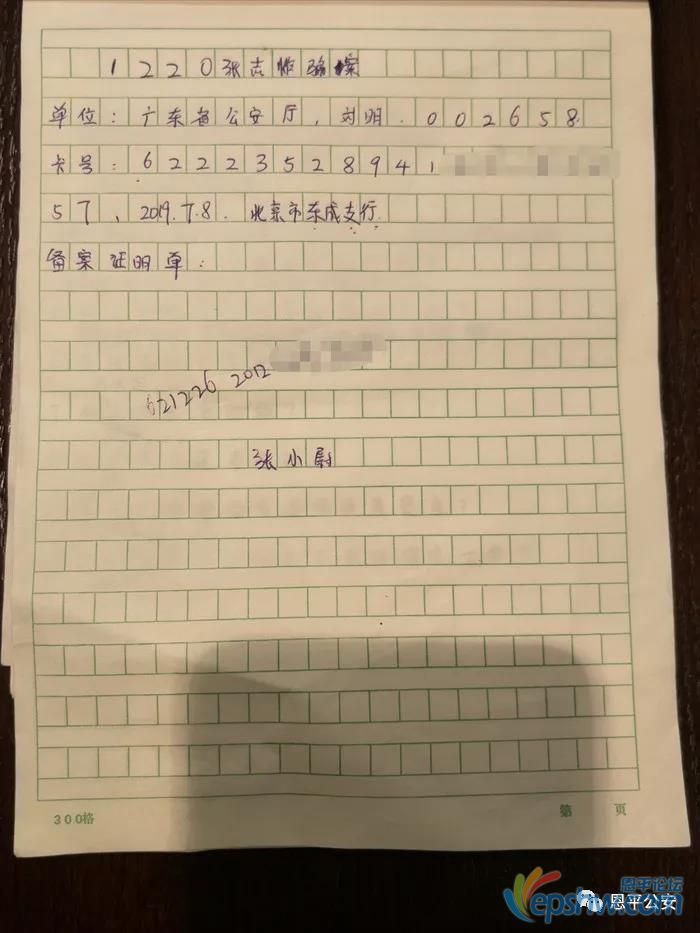 1220张志诈骗案
单位：广东省公安厅，刘明．002658
卡号：62223528941
57、2019.7.8．北京市东成支行
备案证明单：
621226 2012
张小尉
300格
第 页
恩平论坛
epshw.com
恩平公安